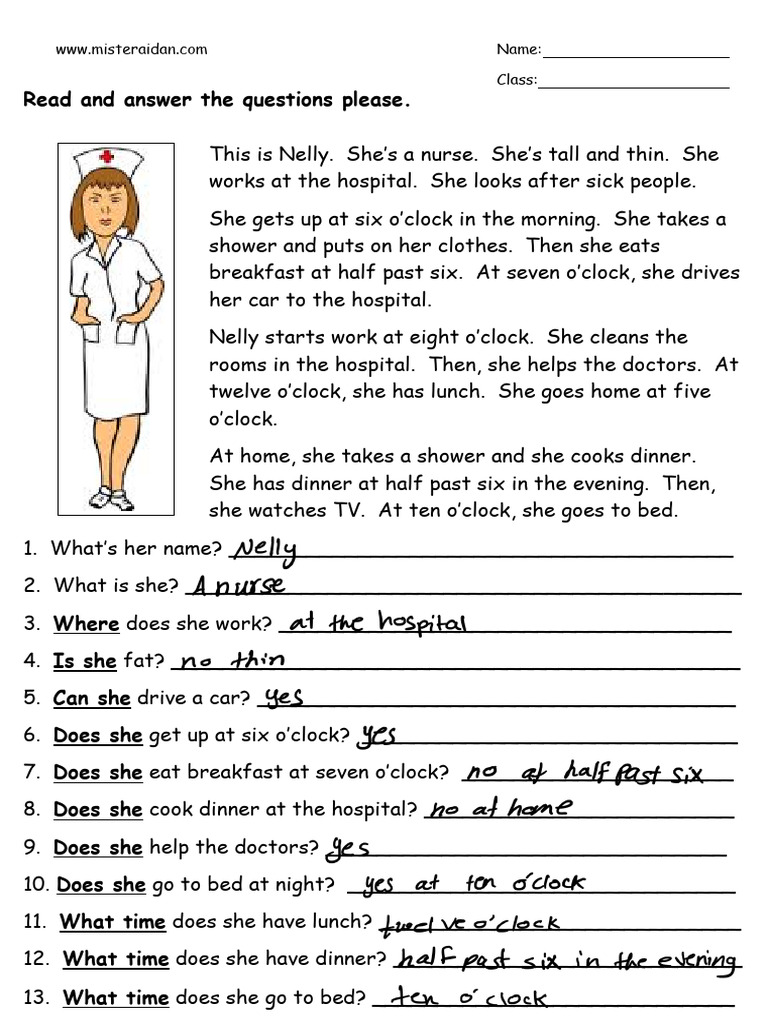 www.misteraidan.com
Name:
Class:
Read and answer the questions please.
This is Nelly. She's a nurse. She's tall and thin. She
works at the hospital. She looks after sick people.
She gets up at six o'clock in the morning. She takes a
shower and puts on her clothes. Then she eats
breakfast at half past six. At seven o'clock, she drives
her car to the hospital.
Nelly starts work at eight o'clock. She cleans the
rooms in the hospital. Then, she helps the doctors. At
twelve o'clock, she has lunch. She goes home at five
o'clock.
At home, she takes a shower and she cooks dinner.
She has dinner at half past six in the evening. Then,
she watches TV. At ten o'clock, she goes to bed.
1. What's her name? Nelly
2. What is she? A nurse
3. Where does she work? at the hospital
4. Is she fat? no thin
5. Can she drive a car? yes
6. Does she get up at six o'clock? yes
7. Does she eat breakfast at seven o'clock? no at half past six
8. Does she cook dinner at the hospital? no at home
9. Does she help the doctors? yes
10. Does she go to bed at night? yes at ten o'clock
11. What time does she have lunch? twelve o'clock
12. What time does she have dinner? half past six in the evening
13. What time does she go to bed? ten o'clock